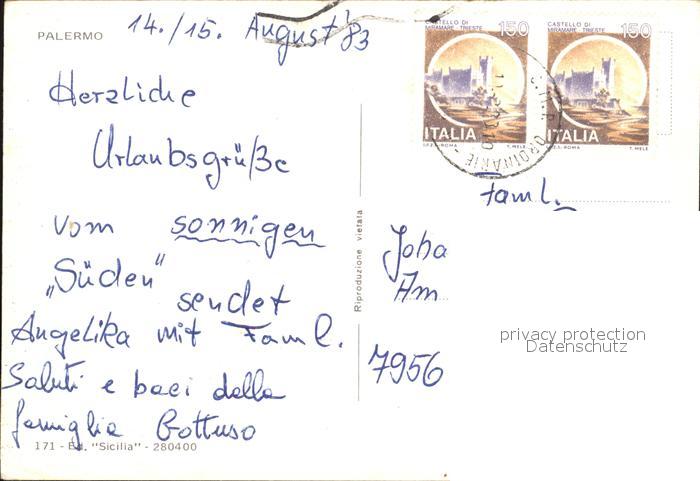 PALERMO
14./15. August '83
Herzliche
Urlaubsgrüße
vom sonnigen
„Süden“
sendet
Angelika mit Faml.
Saluti e baci della
famiglia Gottuso
171 - Ed. "Sicilia" - 280400
Riproduzione vietata
CASTELLO DI
MIRAMARE TRIESTE
150
ITALIA
I.P.Z.S.-ROMA
T. MELE
CASTELLO DI
MIRAMARE TRIESTE
150
ITALIA
I.P.Z.S.-ROMA
T. MELE
ORDINARIE
Faml.
Joha
Am
7956
privacy protection
Datenschutz